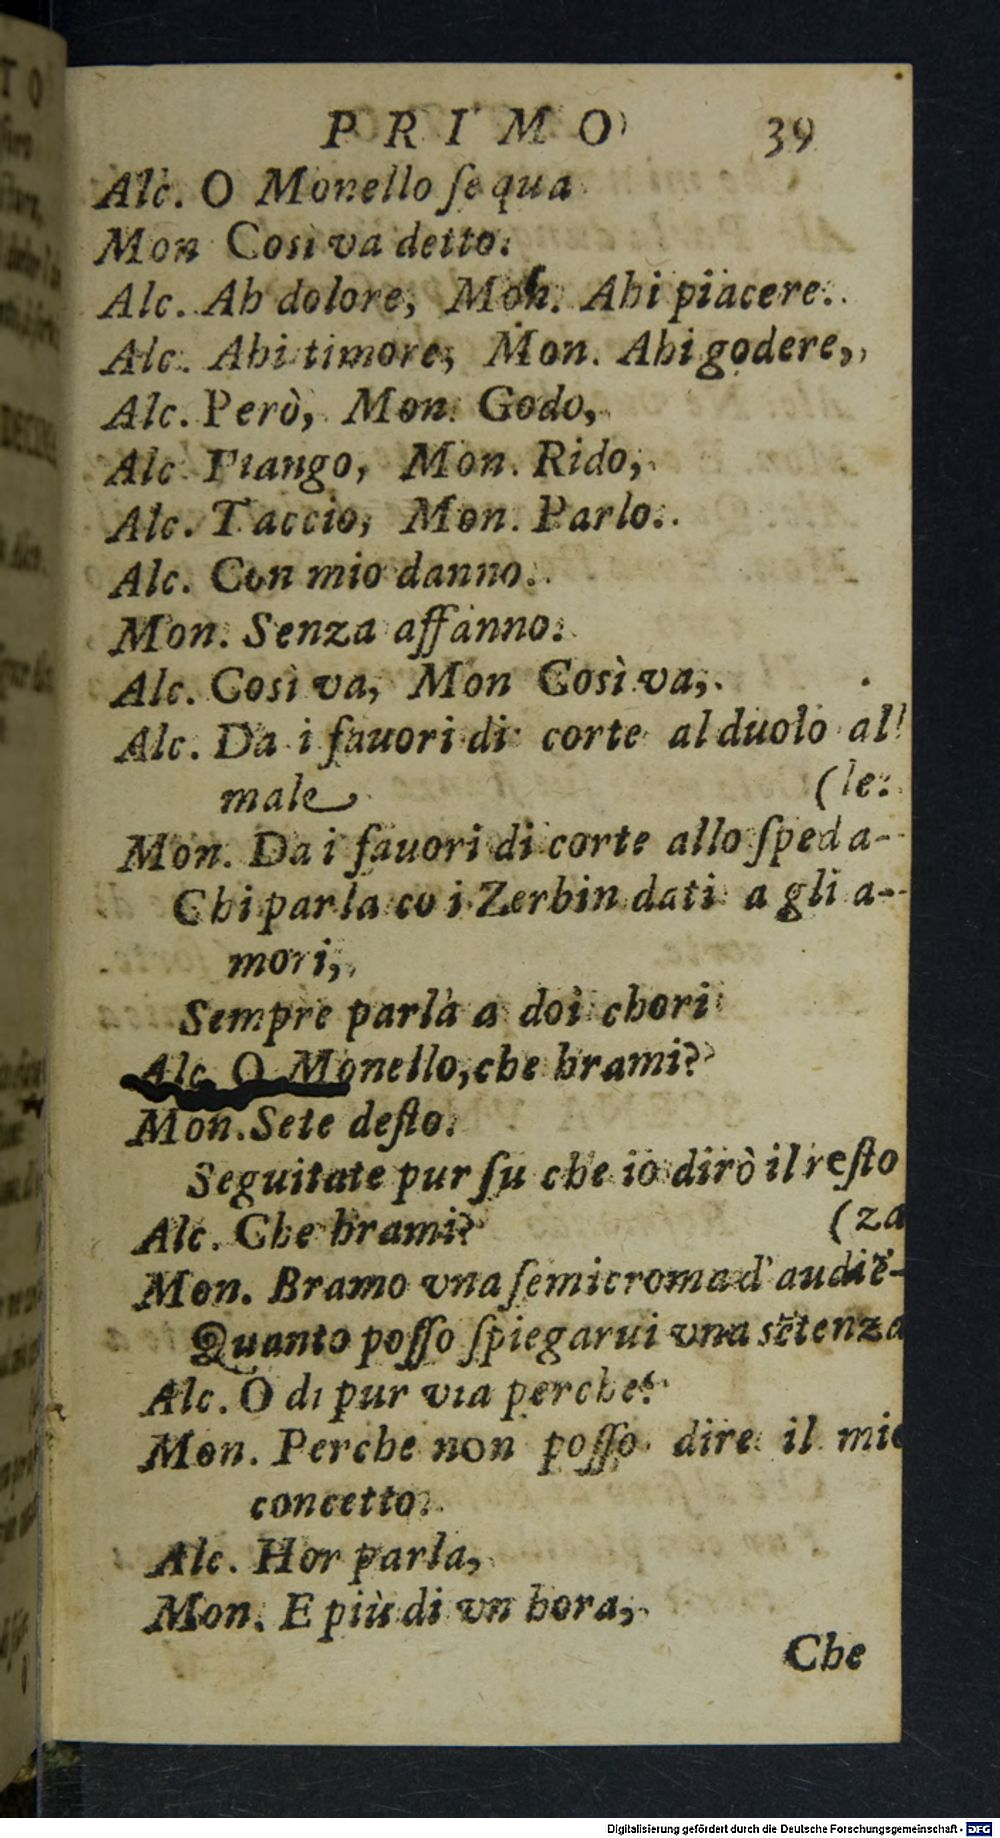 PRIMO 39
Alc. O Monello ſe qua
Mon Cosi va detto.
Alc. Ah dolore, Mon. Ahi piacere.
Alc. Ahi timore, Mon. Ahi godere,
Alc. Però, Mon. Godo,
Alc Piango, Mon. Rido,
Alc. Taccio, Mon. Parlo.
Alc. Con mio danno.
Mon. Senza affanno.
Alc. Così va, Mon Così va,
Alc. Da i fauori di corte al duolo al
male (le.
Mon. Da i fauori di corte allo ſpeda-
Chi parla co i Zerbin dati a gli a-
mori,
Sempre parla a doi chori
Alc. O Monello, che brami?
Mon. Sete deſto.
Seguitate pur ſu che io dirò il reſto
Alc. Che brami? (za
Mon. Bramo vna ſemicroma d'audiẽ-
Quanto poſſo ſpiegarui vna sẽtenza
Alc. O di pur via perche?
Mon. Perche non poſſo dire il mio
concetto.
Alc. Hor parla,
Mon. E più di vn hora,
Che
Digitalisierung gefördert durch die Deutsche Forschungsgemeinschaft - DFG